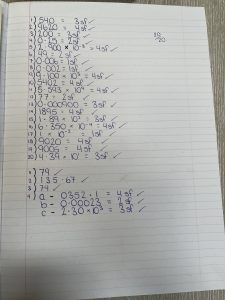 1) 540 = 3sf ✓
2) 9620 = 4sf ✓
3) 200 = 3sf ✓
4) 0.25 = 2sf ✓
5) 2.900 × 10⁻³ = 4sf ✓
6) 99 = 2sf ✓
7) 0.006 = 1sf ✓
8) 0.002 = 1sf ✓
9) 9.100 × 10³ = 4sf ✓
10) 5402 = 4sf ✓
11) 5.593 × 10⁴ = 4sf ✓
12) 77 = 2sf ✓
13) 0.000900 = 3sf ✓
14) 1895 = 4sf ✓
15) 1.89 × 10³ = 3sf ✓
16) 6.350 × 10⁻⁴ = 4sf ✓
17) 1 × 10⁻¹ = 1sf ✓
18) 9020 = 4sf ✓
19) 9005 = 4sf ✓
20) 4.39 × 10¹ = 3sf ✓
20/20
1) 79 ✓
2) 135.67 ✓
3) 74 ✓
4) a - 0352.1 = 4sf ✓
b - 0.00023 = 2sf ✓
c - 2.30 × 10³ = 3sf ✓